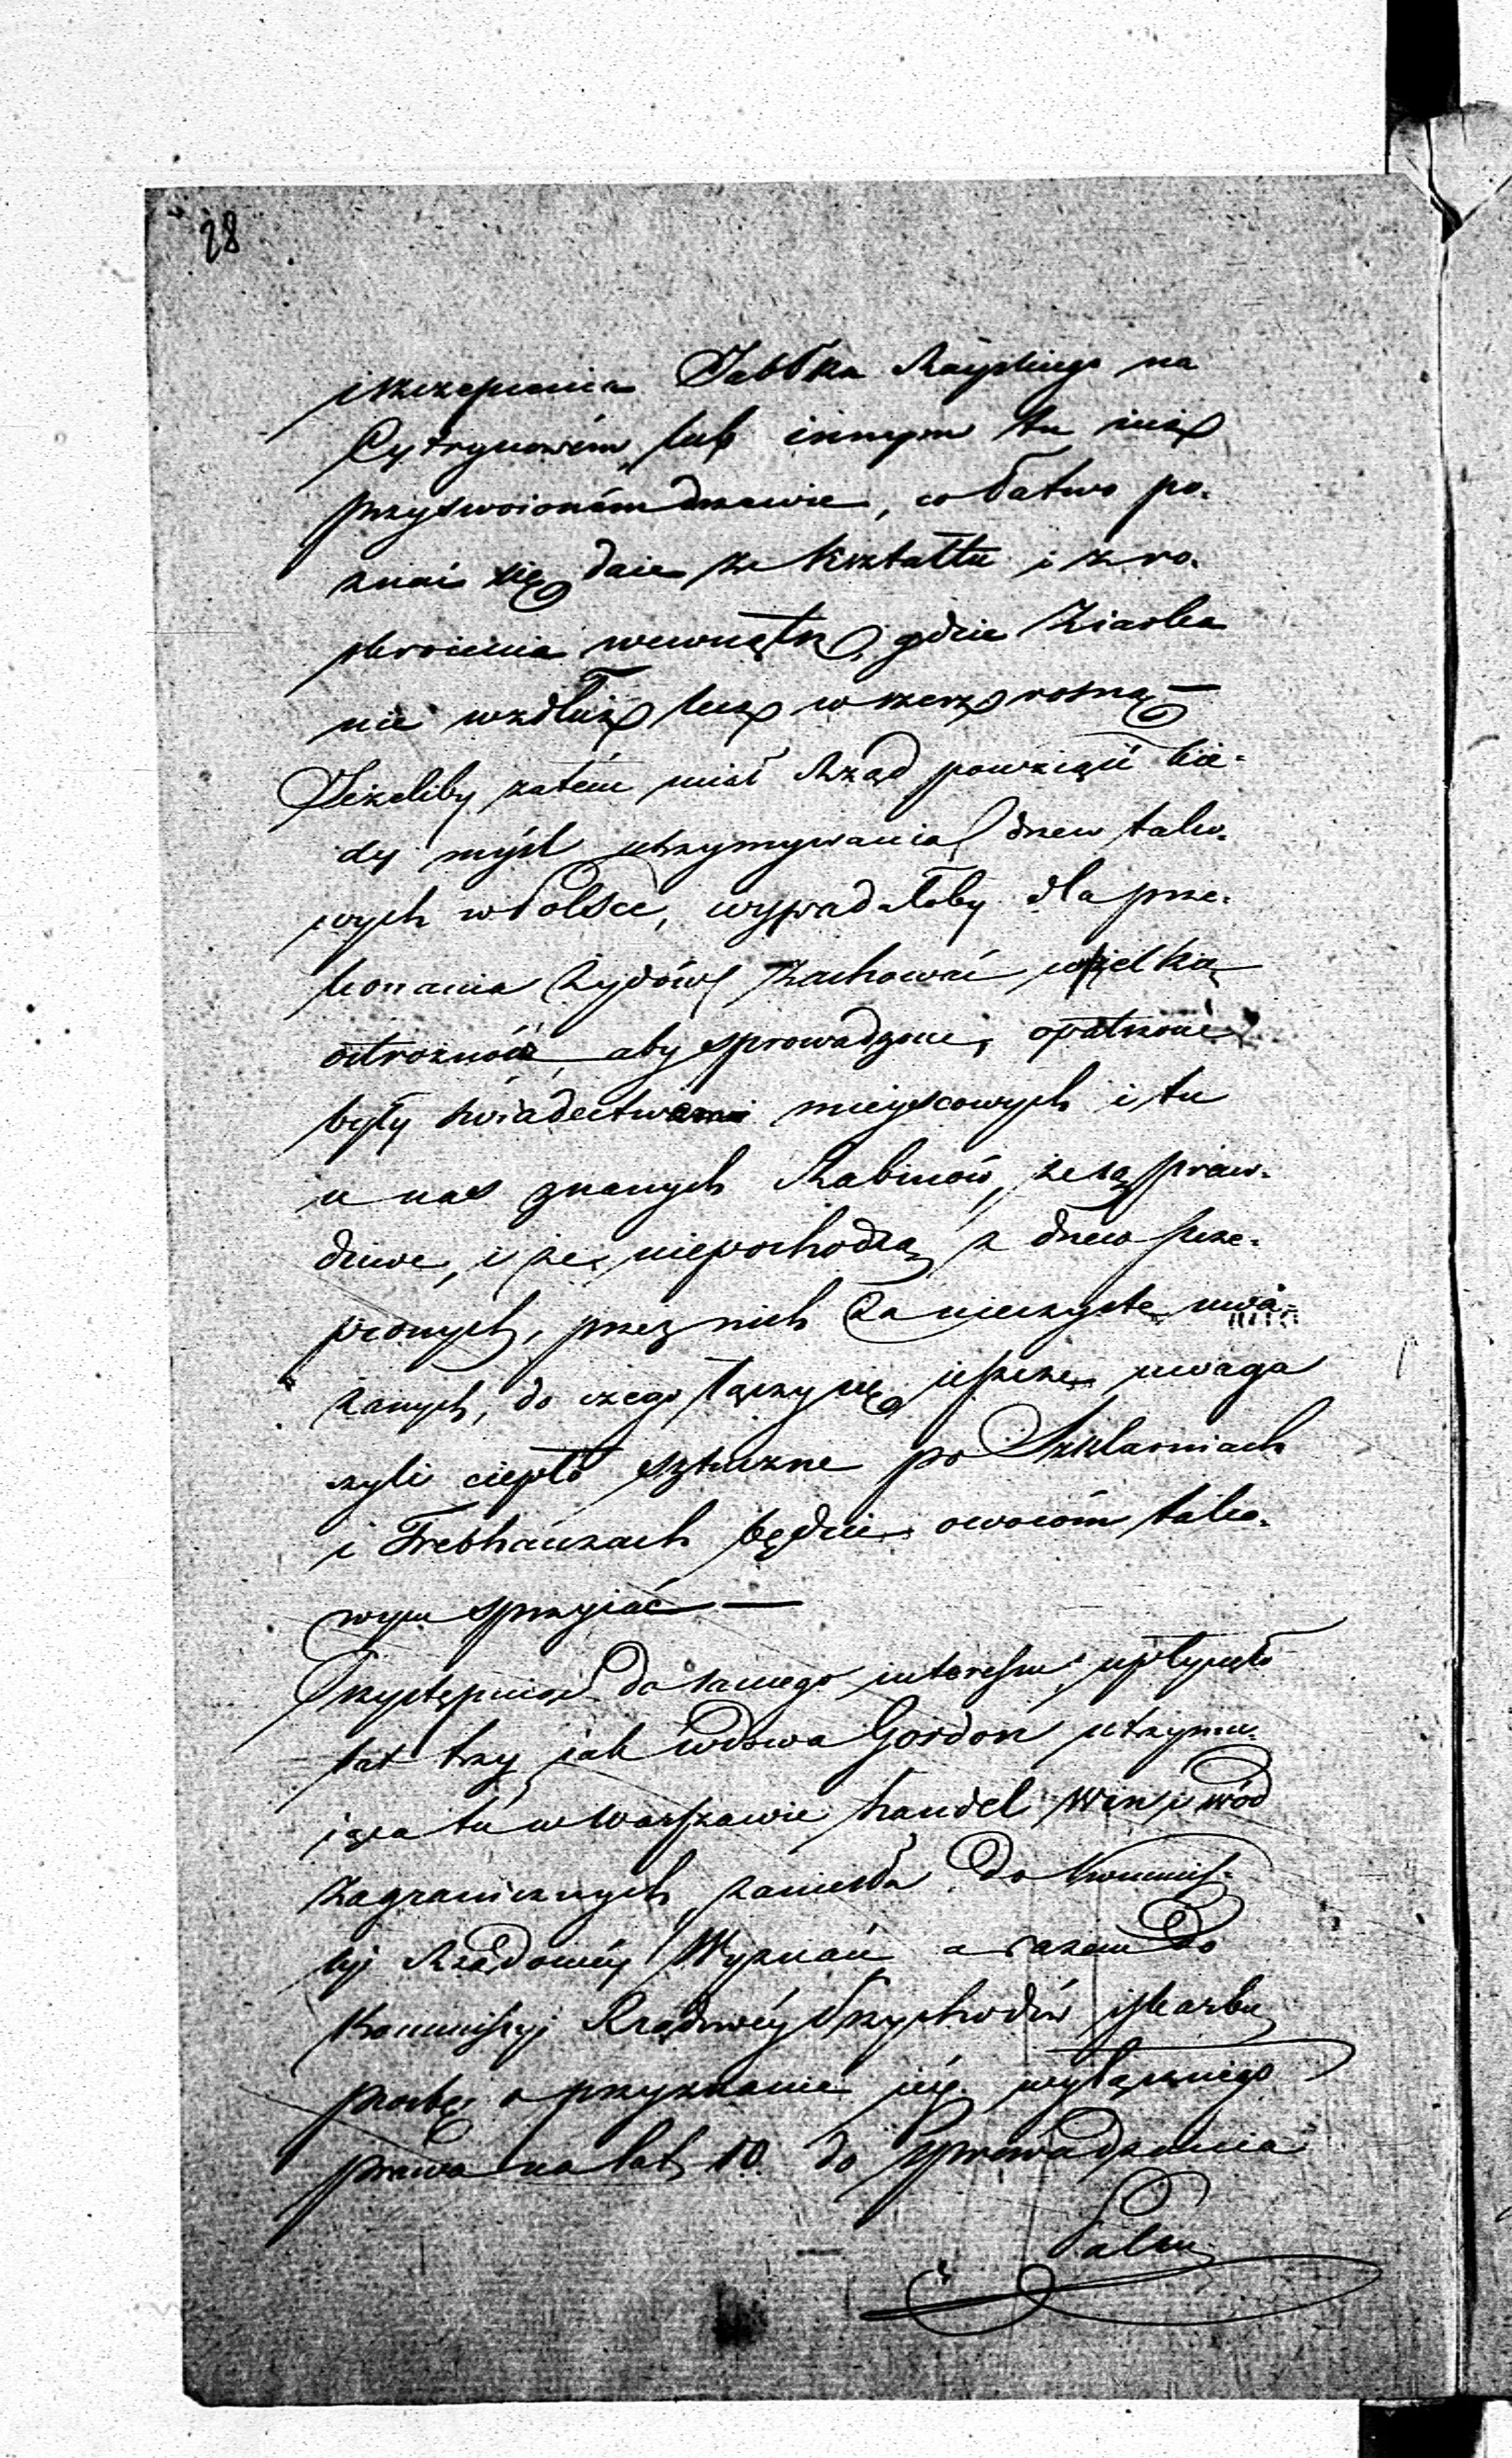 28
i szczepienia Jabłka Rayskiego na
Cytrynowém, lub innym tu iuż
przyswoioném drzewie, co łatwo po-
znać się daie ze kształtu i z ro-
skroienia wewnątrz, gdzie Ziarka
nie wzdłuż lecz w szerz rosną —
Jeżeliby zatém miał Rząd powziąść kie-
dy myśl utrzymywania drzew tako-
wych w Polsce, wypadałoby dla prze-
konania Żydów zachować wszelką
ostrożność, aby sprowadzone, opatrzone
były świadectwami mieyscowych i tu
u nas znanych Rabinów, że są praw-
dziwe, i że niepochodzą z drzew szcze-
pionych, przez nich za nieczyste uwa-
żanych, do czego łączy się jeszcze uwaga
czyli ciepło sztuczne po Szklarniach
i Trebhauzach będzie owocóm tako-
wym sprzyiać —
Przystępuiąc do samego interessu; upłynęło
lat trzy jak wdowa Gordon utrzymu-
iąca tu w Warszawie handel Win i wód
zagranicznych, zaniosła do Kommis-
syi Rządowéy Wyznań a razem do
Kommissyi Rządowéy Przychodów i Skarbu
prośbę o przyznanie jéy wyłącznego
prawa na lat 10. do sprowadzania
Palm